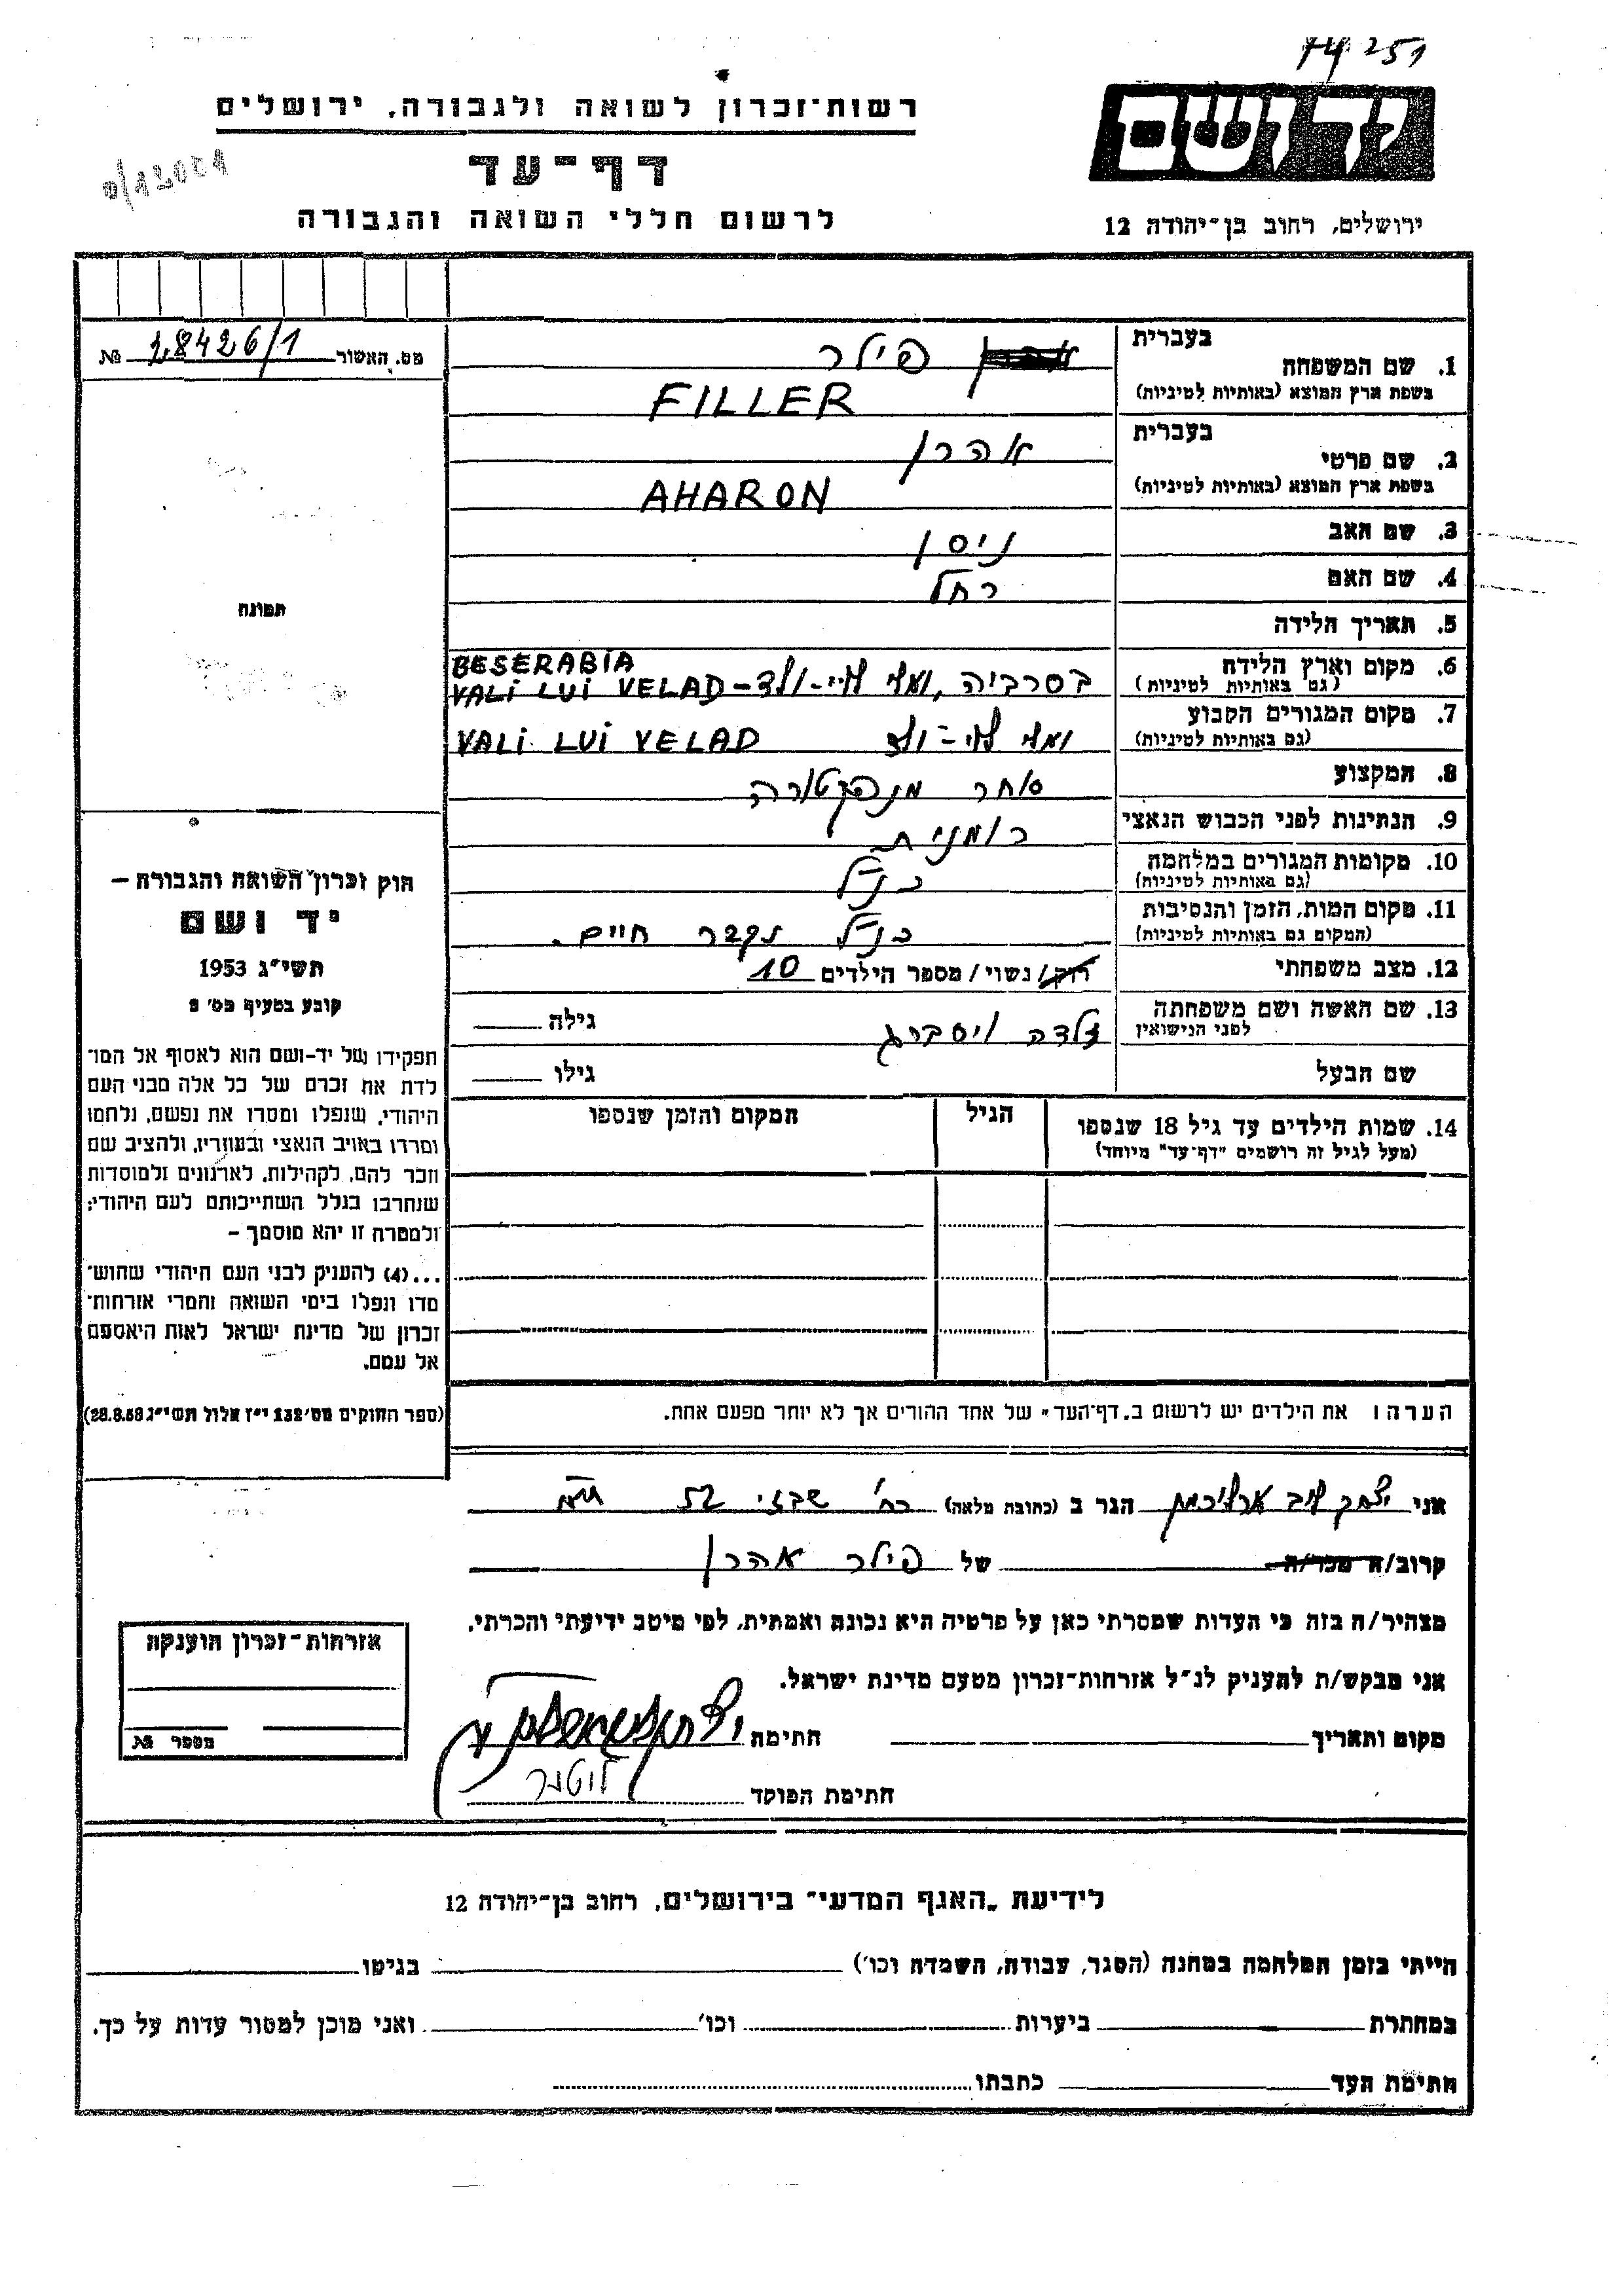 74251
רשות־זכרון לשואה ולגבורה, ירושלים
יד ושם
דף־עד
לרשום חללי השואה והגבורה
ירושלים, רחוב בן־יהודה 12
מס. האשור 28426/1 №
בעברית
1. שם המשפחה פילר
בשפת ארץ המוצא (באותיות לטיניות) FILLER
בעברית
2. שם פרטי אהרן
בשפת ארץ המוצא (באותיות לטיניות) AHARON
3. שם האב ניסן
4. שם האם רחל
5. תאריך הלידה
6. מקום וארץ הלידה (גם באותיות לטיניות) בסרביה, BESERABIA
VALI LUI VELAD
7. מקום המגורים הקבוע (גם באותיות לטיניות) VALI LUI VELAD
8. המקצוע סוחר מנפקטורה
9. הנתינות לפני הכבוש הנאצי רומנית
10. מקומות המגורים במלחמה (גם באותיות לטיניות) כנ״ל
11. מקום המות, הזמן והנסיבות (המקום גם באותיות לטיניות) כנ״ל נקבר חיים.
12. מצב משפחתי רוק/נשוי/מספר הילדים 10
13. שם האשה ושם משפחתה לפני הנישואין זלדה ויסברג גילה
שם הבעל גילו
14. שמות הילדים עד גיל 18 שנספו
(מעל לגיל זה רושמים "דף־עד" מיוחד)
הגיל
המקום והזמן שנספו
הערה: את הילדים יש לרשום ב„דף־העד" של אחד ההורים אך לא יותר מפעם אחת.
תמונה
חוק זכרון השואה והגבורה –
יד ושם
תשי״ג 1953
קובע בסעיף מס׳ 2
תפקידו של יד-ושם הוא לאסוף אל המו־
לדת את זכרם של כל אלה מבני העם
היהודי, שנפלו ומסרו את נפשם, נלחמו
ומרדו באויב הנאצי ובעוזריו, ולהציב שם
וזכר להם, לקהילות, לארגונים ולמוסדות
שנחרבו בגלל השתייכותם לעם היהודי;
ולמטרה זו יהא מוסמך –
...(4) להעניק לבני העם היהודי שהוש־
מדו ונפלו בימי השואה והמרי אזרחות־
זכרון של מדינת ישראל לאות היאספם
אל עמם.
(ספר החוקים מס׳ 132 י״ז אלול תשי״ג 28.8.53)
אני יצחק הגר ב (כתובת מלאה) רח׳ שבזי 52
קרוב/ה מכר/ה של פילר אהרן
מצהיר/ה בזה כי העדות שמסרתי כאן על פרטיה היא נכונה ואמתית, לפי מיטב ידיעתי והכרתי.
אני מבקש/ת להעניק לנ״ל אזרחות־זכרון מטעם מדינת ישראל.
מקום ותאריך חתימה
חתימת הפוקד
אזרחות־זכרון הוענקה
מספר №
לידיעת „האגף המדעי" בירושלים, רחוב בן־יהודה 12
הייתי בזמן המלחמה במחנה (הסגר, עבודה, השמדה וכו׳) בגיטו
במחתרת ביערות וכו׳ ואני מוכן למסור עדות על כך.
חתימת העד כתבתו